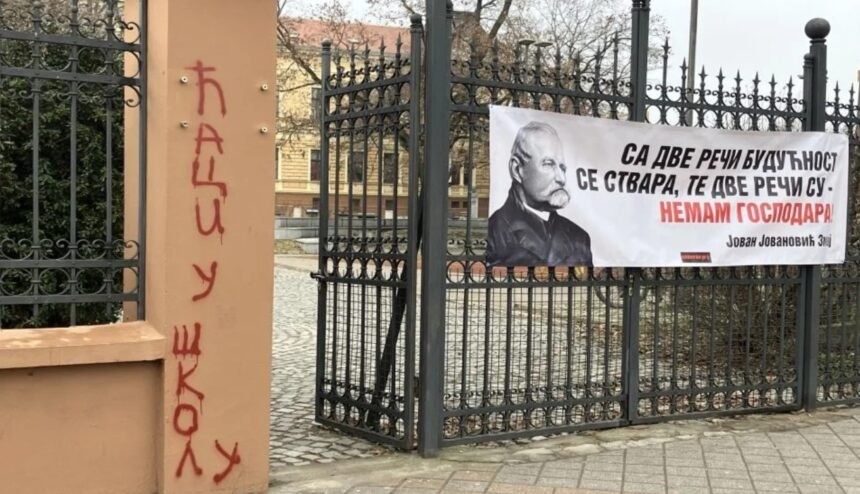 ЋАЦИ У ШКОЛУ
СА ДВЕ РЕЧИ БУДУЋНОСТ
СЕ СТВАРА, ТЕ ДВЕ РЕЧИ СУ -
НЕМАМ ГОСПОДАРА!
Јован Јовановић Змај